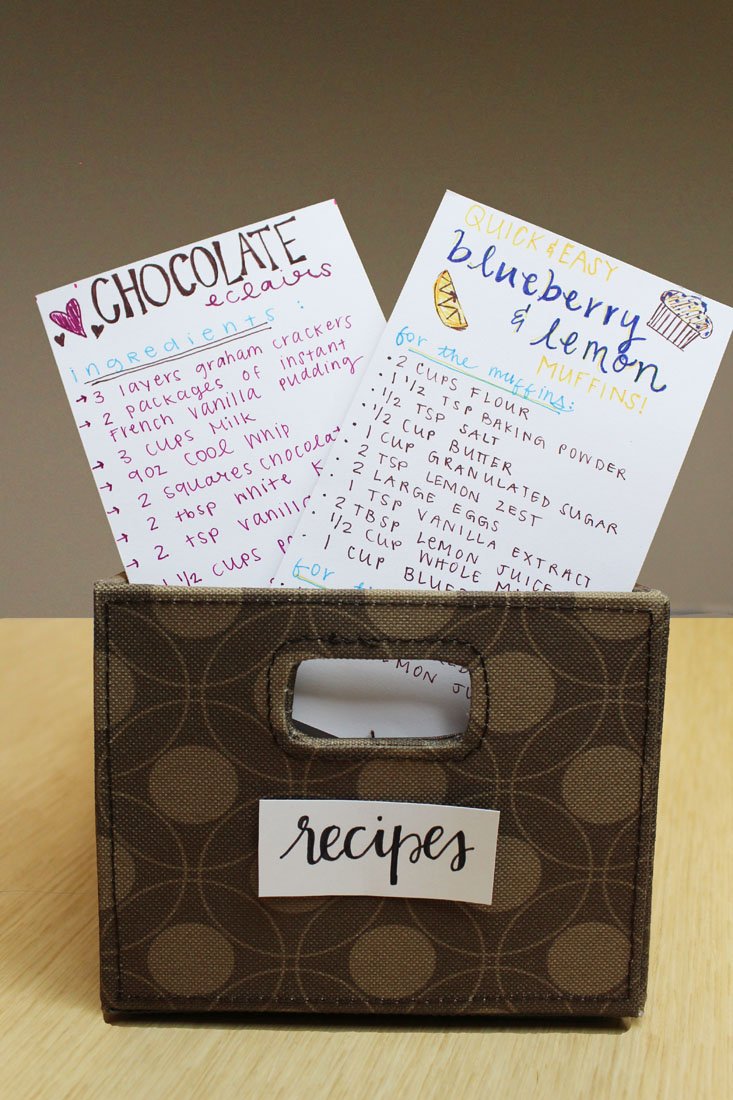 CHOCOLATE
eclairs
ingredients:
→ 3 layers graham crackers
→ 2 packages of instant
French vanilla pudding
→ 3 cups milk
→ 9oz cool whip
→ 2 squares chocolat
→ 2 tbsp white
→ 2 tsp vanill
→ 1 1/2 cups
QUICK & EASY
blueberry
& lemon
MUFFINS!
for the muffins:
• 2 CUPS FLOUR
• 1 1/2 TSP BAKING POWDER
• 1/2 TSP SALT
• 1/2 CUP BUTTER
• 1 CUP GRANULATED SUGAR
• 2 TSP LEMON ZEST
• 2 LARGE EGGS
• 1 TSP VANILLA EXTRACT
• 2 TBSP LEMON JUICE
• 1/2 CUP WHOLE M
• 1 CUP BLUE
for
LEMON JU
recipes